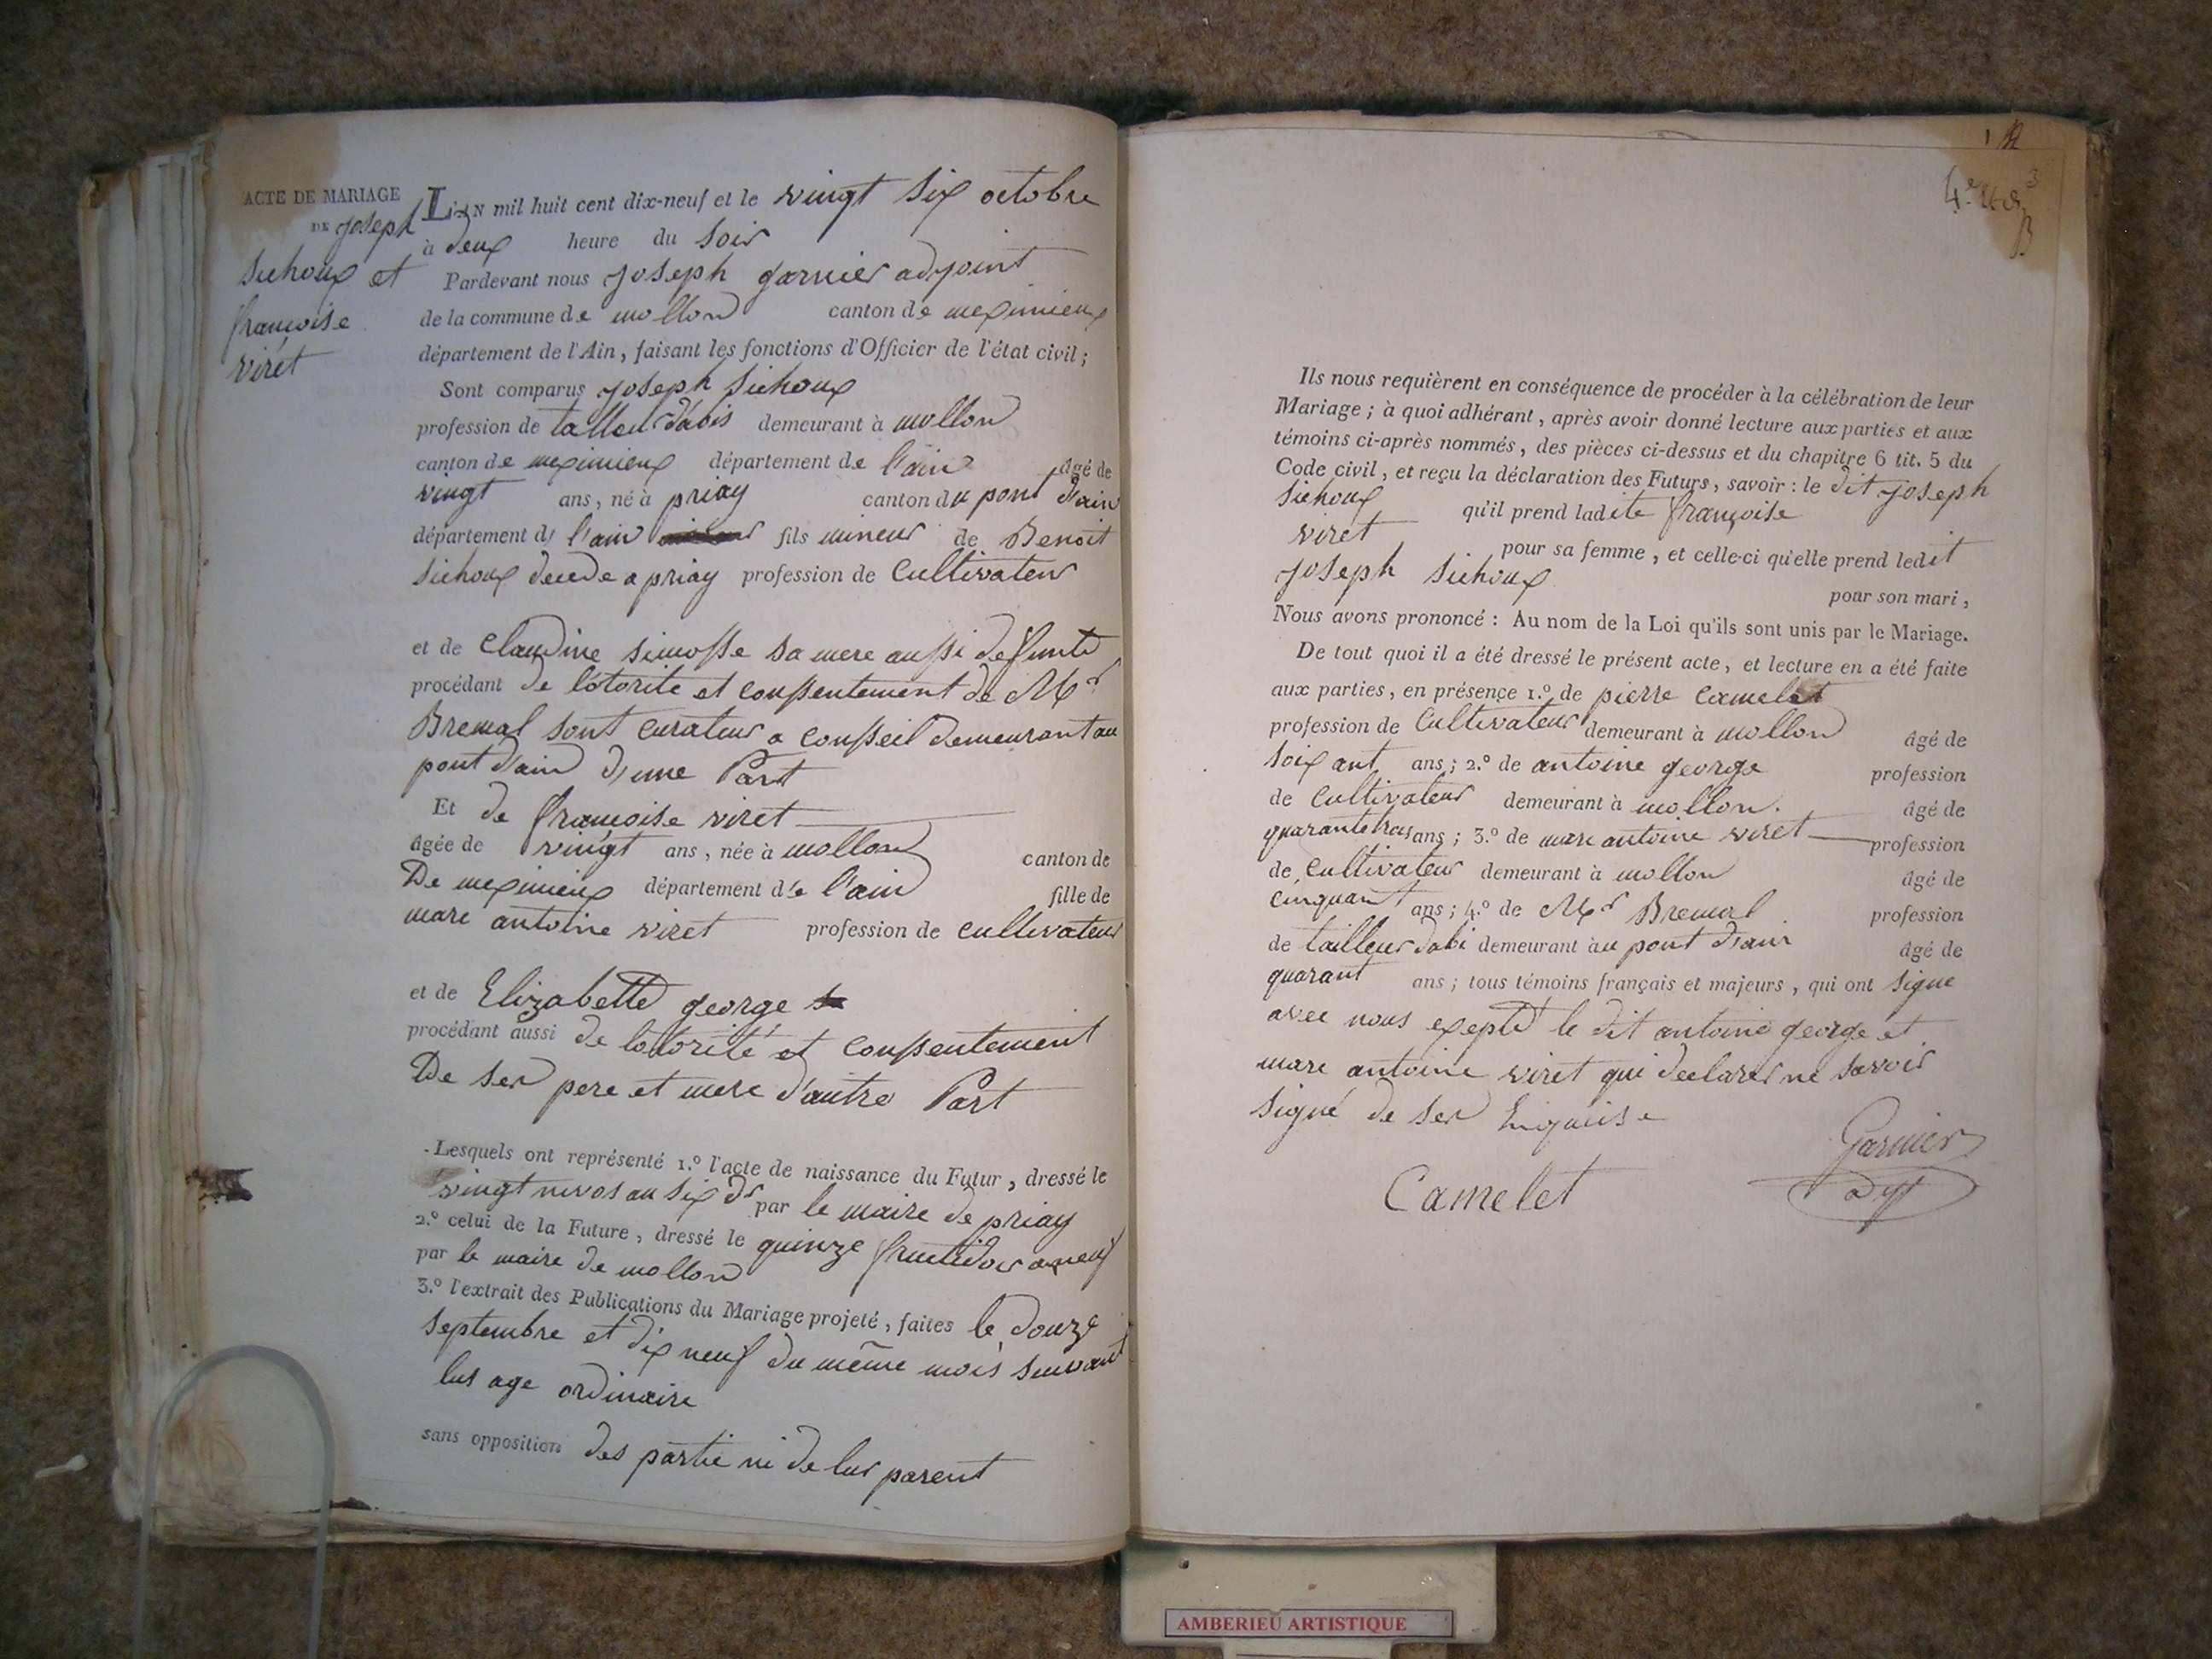 ACTE DE MARIAGE
DE joseph
sichoux et
françoise
virét
L'AN mil huit cent dix-neuf et le vingt six octobre
à deux heure du soir
Pardevant nous joseph garnier adjoint
de la commune de mollon canton de meximieux
département de l'Ain, faisant les fonctions d'Officier de l'état civil;
Sont comparus joseph sichoux
profession de talleur d'abis demeurant à mollon
canton de meximieux département de l'ain âgé de
vingt ans, né à priay canton du pont d'ain
département de l'ain fils mineur de Benoit
sichoux decede a priay profession de Cultivateur
et de Claudine simosse sa mere aussi defunte
procédant de l'otorite et conssentement de Mr
Bremal sont curateur a consseil demeurant au
pont d'ain d'une Part
Et de françoise viret
âgée de vingt ans, née à mollon canton de
De meximieux département de l'ain fille de
marc antoine viret profession de cultivateur
et de Elizabette george
procédant aussi de lotorité et conssentement
De ser pere et mere d'autre Part
Lesquels ont représenté 1.º l'acte de naissance du Futur, dressé le
vingt nivos an six dr par le maire de priay
2.º celui de la Future, dressé le quinze fructidor a neuf
par le maire de mollon
3.º l'extrait des Publications du Mariage projeté, faites le douze
septembre et dix neuf du même mois suivant
lus age ordinaire
sans opposition des partie ni de lur parent
Ils nous requièrent en conséquence de procéder à la célébration de leur
Mariage; à quoi adhérant, après avoir donné lecture aux parties et aux
témoins ci-après nommés, des pièces ci-dessus et du chapitre 6 tit. 5 du
Code civil, et reçu la déclaration des Futurs, savoir: le dit joseph
sichoux qu'il prend ladite françoise
viret pour sa femme, et celle-ci qu'elle prend ledit
joseph sichoux pour son mari,
Nous avons prononcé: Au nom de la Loi qu'ils sont unis par le Mariage.
De tout quoi il a été dressé le présent acte, et lecture en a été faite
aux parties, en présence 1.º de pierre Camelet
profession de Cultivateur demeurant à mollon âgé de
soixant ans; 2.º de antoine george profession
de Cultivateur demeurant à mollon. âgé de
quarante trois ans; 3.º de marc antoine viret profession
de Cultivateur demeurant à mollon âgé de
cinquant ans; 4.º de Mr Bremal profession
de tailleur dabi demeurant àu pont d'ain âgé de
quarant ans; tous témoins français et majeurs, qui ont signe
avec nous exepté le dit antoine george et
marc antoine viret qui declarer ne savoir
signé de ser
Garnier
Camelet
adjt
AMBERIEU ARTISTIQUE